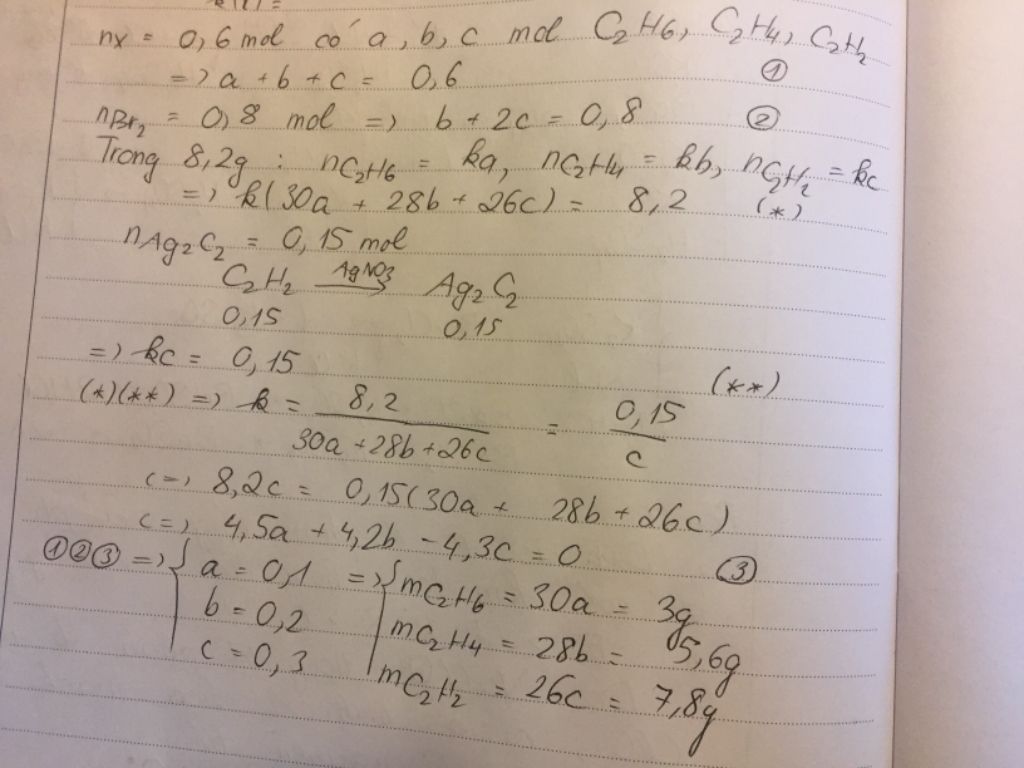 nx = 0,6 mol có a, b, c mol C2H6, C2H4, C2H2
=> a + b + c = 0,6 ①
nBr2 = 0,8 mol => b + 2c = 0,8 ②
Trong 8,2g : nC2H6 = ka, nC2H4 = kb, nC2H2 = kc
=> k(30a + 28b + 26c) = 8,2 (*)
nAg2C2 = 0,15 mol
C2H2 —AgNO3→ Ag2C2
0,15 0,15
=> kc = 0,15 (**)
(*)(**) => k = 8,2 / 30a + 28b + 26c = 0,15 / c
<=> 8,2c = 0,15(30a + 28b + 26c)
<=> 4,5a + 4,2b - 4,3c = 0 ③
①②③ => { a = 0,1 => { mC2H6 = 30a = 3g
b = 0,2 mC2H4 = 28b = 5,6g
c = 0,3 mC2H2 = 26c = 7,8g